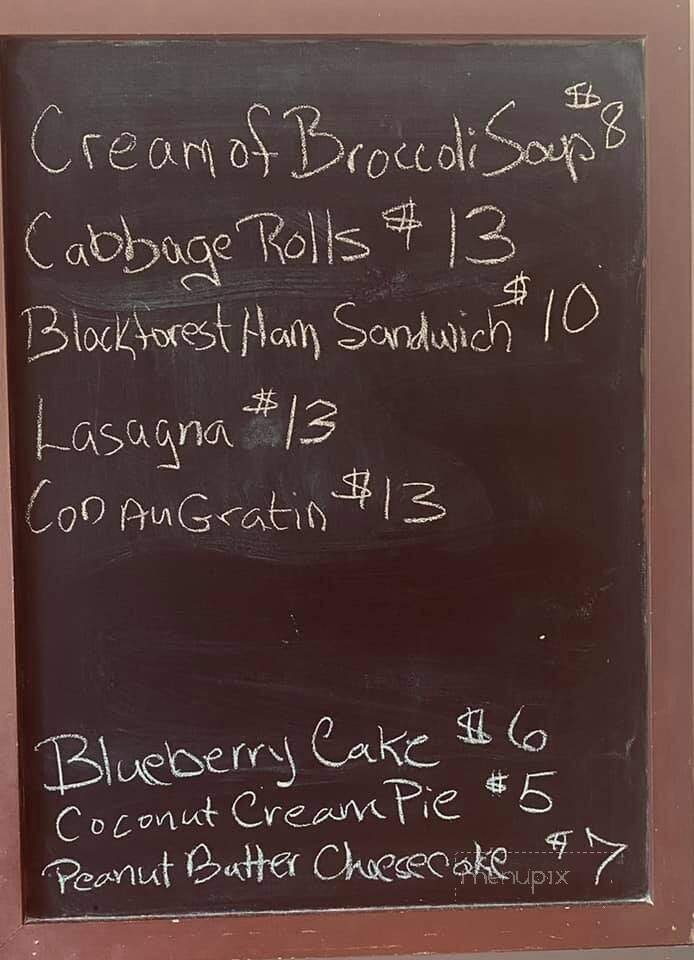 Cream of Broccoli Soup $8
Cabbage Rolls $13
Blackforest Ham Sandwich $10
Lasagna $13
COD AuGratin $13
Blueberry Cake $6
Coconut Cream Pie $5
Peanut Butter Cheesecake $7
menupix